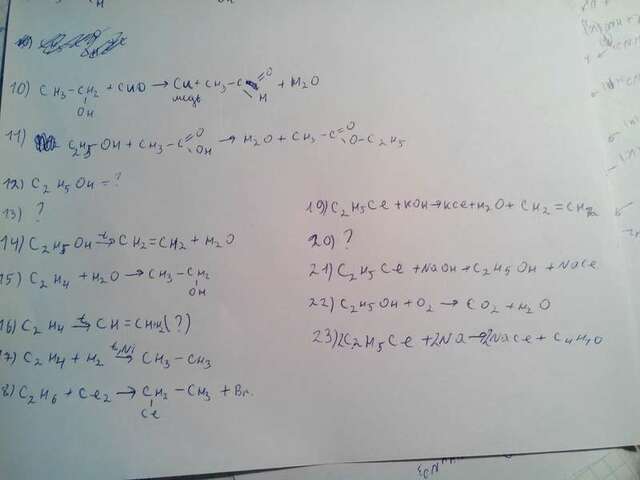 10) CH3-CH2 + CuO → Cu + CH3-C O + H2O
OH медь H
11) C2H5-OH + CH3-C O OH → H2O + CH3-C O O-C2H5
12) C2H5OH = ?
13) ?
14) C2H5OH t→ CH2=CH2 + H2O
15) C2H4 + H2O → CH3-CH2
OH
16) C2H4 t→ CH=CH2(?)
17) C2H4 + H2 t,Ni→ CH3-CH3
8) C2H6 + Ce2 → CH2-CH3 + Br.
Ce
19) C2H5Ce + KOH → KCe + H2O + CH2=CH2
20) ?
21) C2H5Ce + NaOH → C2H5OH + NaCe
22) C2H5OH + O2 → CO2 + H2O
23) 2C2H5Ce + 2Na → 2NaCe + C4H10